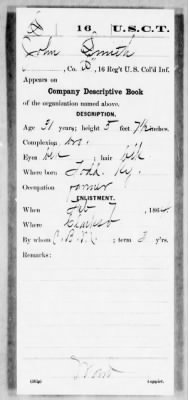 S 16 U.S.C.T.
John Smith
, Co. B, 16 Reg't U. S. Col'd Inf.
Appears on
Company Descriptive Book
of the organization named above.
DESCRIPTION.
Age 31 years; height 5 feet 7½ inches.
Complexion
Eyes blk ; hair blk
Where born Todd, Ky.
Occupation Farmer
ENLISTMENT.
When Feb 7, 186
Where
By whom ; term 3 y'rs.
Remarks:
Copyist.